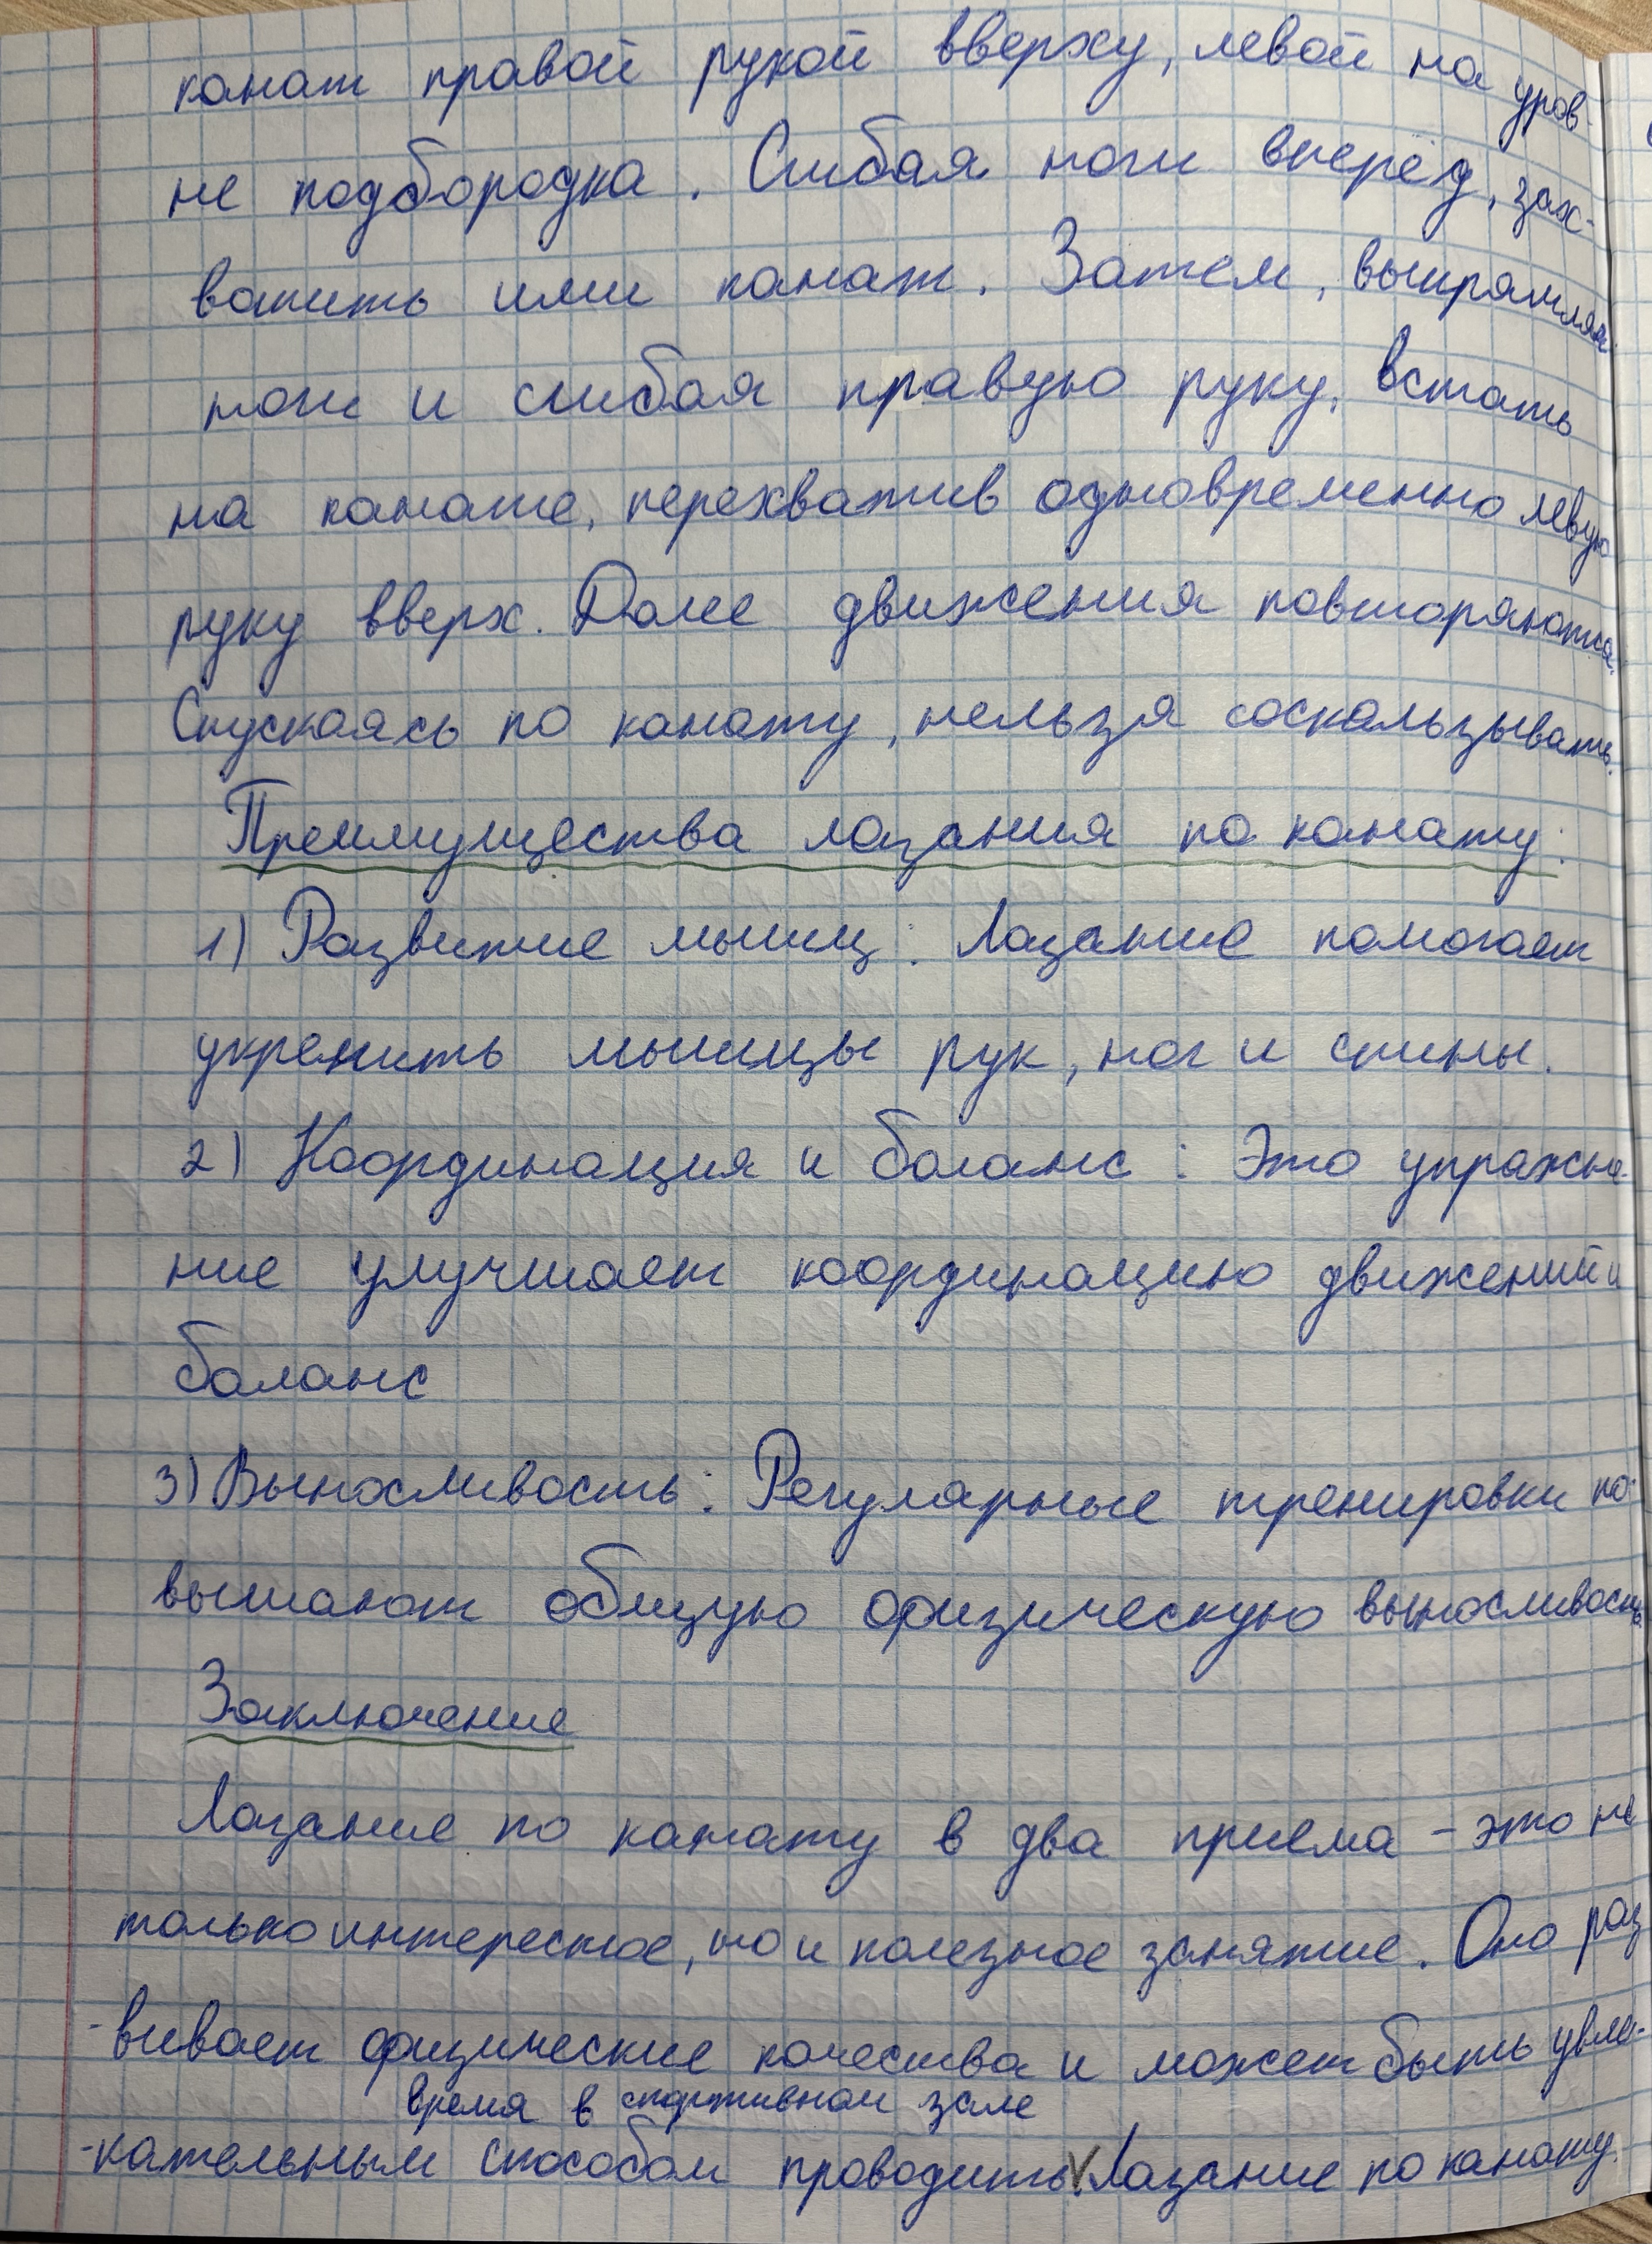 канат правой рукой вверху, левой на уров-
не подбородка. Сгибая ноги вперёд, зах-
ватить ими канат. Затем, выпрямляя
ноги и сгибая правую руку, встать
на канате, перехватив одновременно левую
руку вверх. Далее движения повторяются.
Спускаясь по канату, нельзя соскальзывать.
Преимущества лазания по канату:
1) Развитие мышц: Лазание помогает
укрепить мышцы рук, ног и спины.
2) Координация и баланс: Это упражне-
ние улучшает координацию движений и
баланс
3) Выносливость: Регулярные тренировки по-
вышают общую физическую выносливость.
Заключение
Лазание по канату в два приема - это не
только интересное, но и полезное занятие. Оно раз
-вивает физические качества и может быть увле-
время в спортивном зале
-кательным способом проводить V. Лазание по канату.